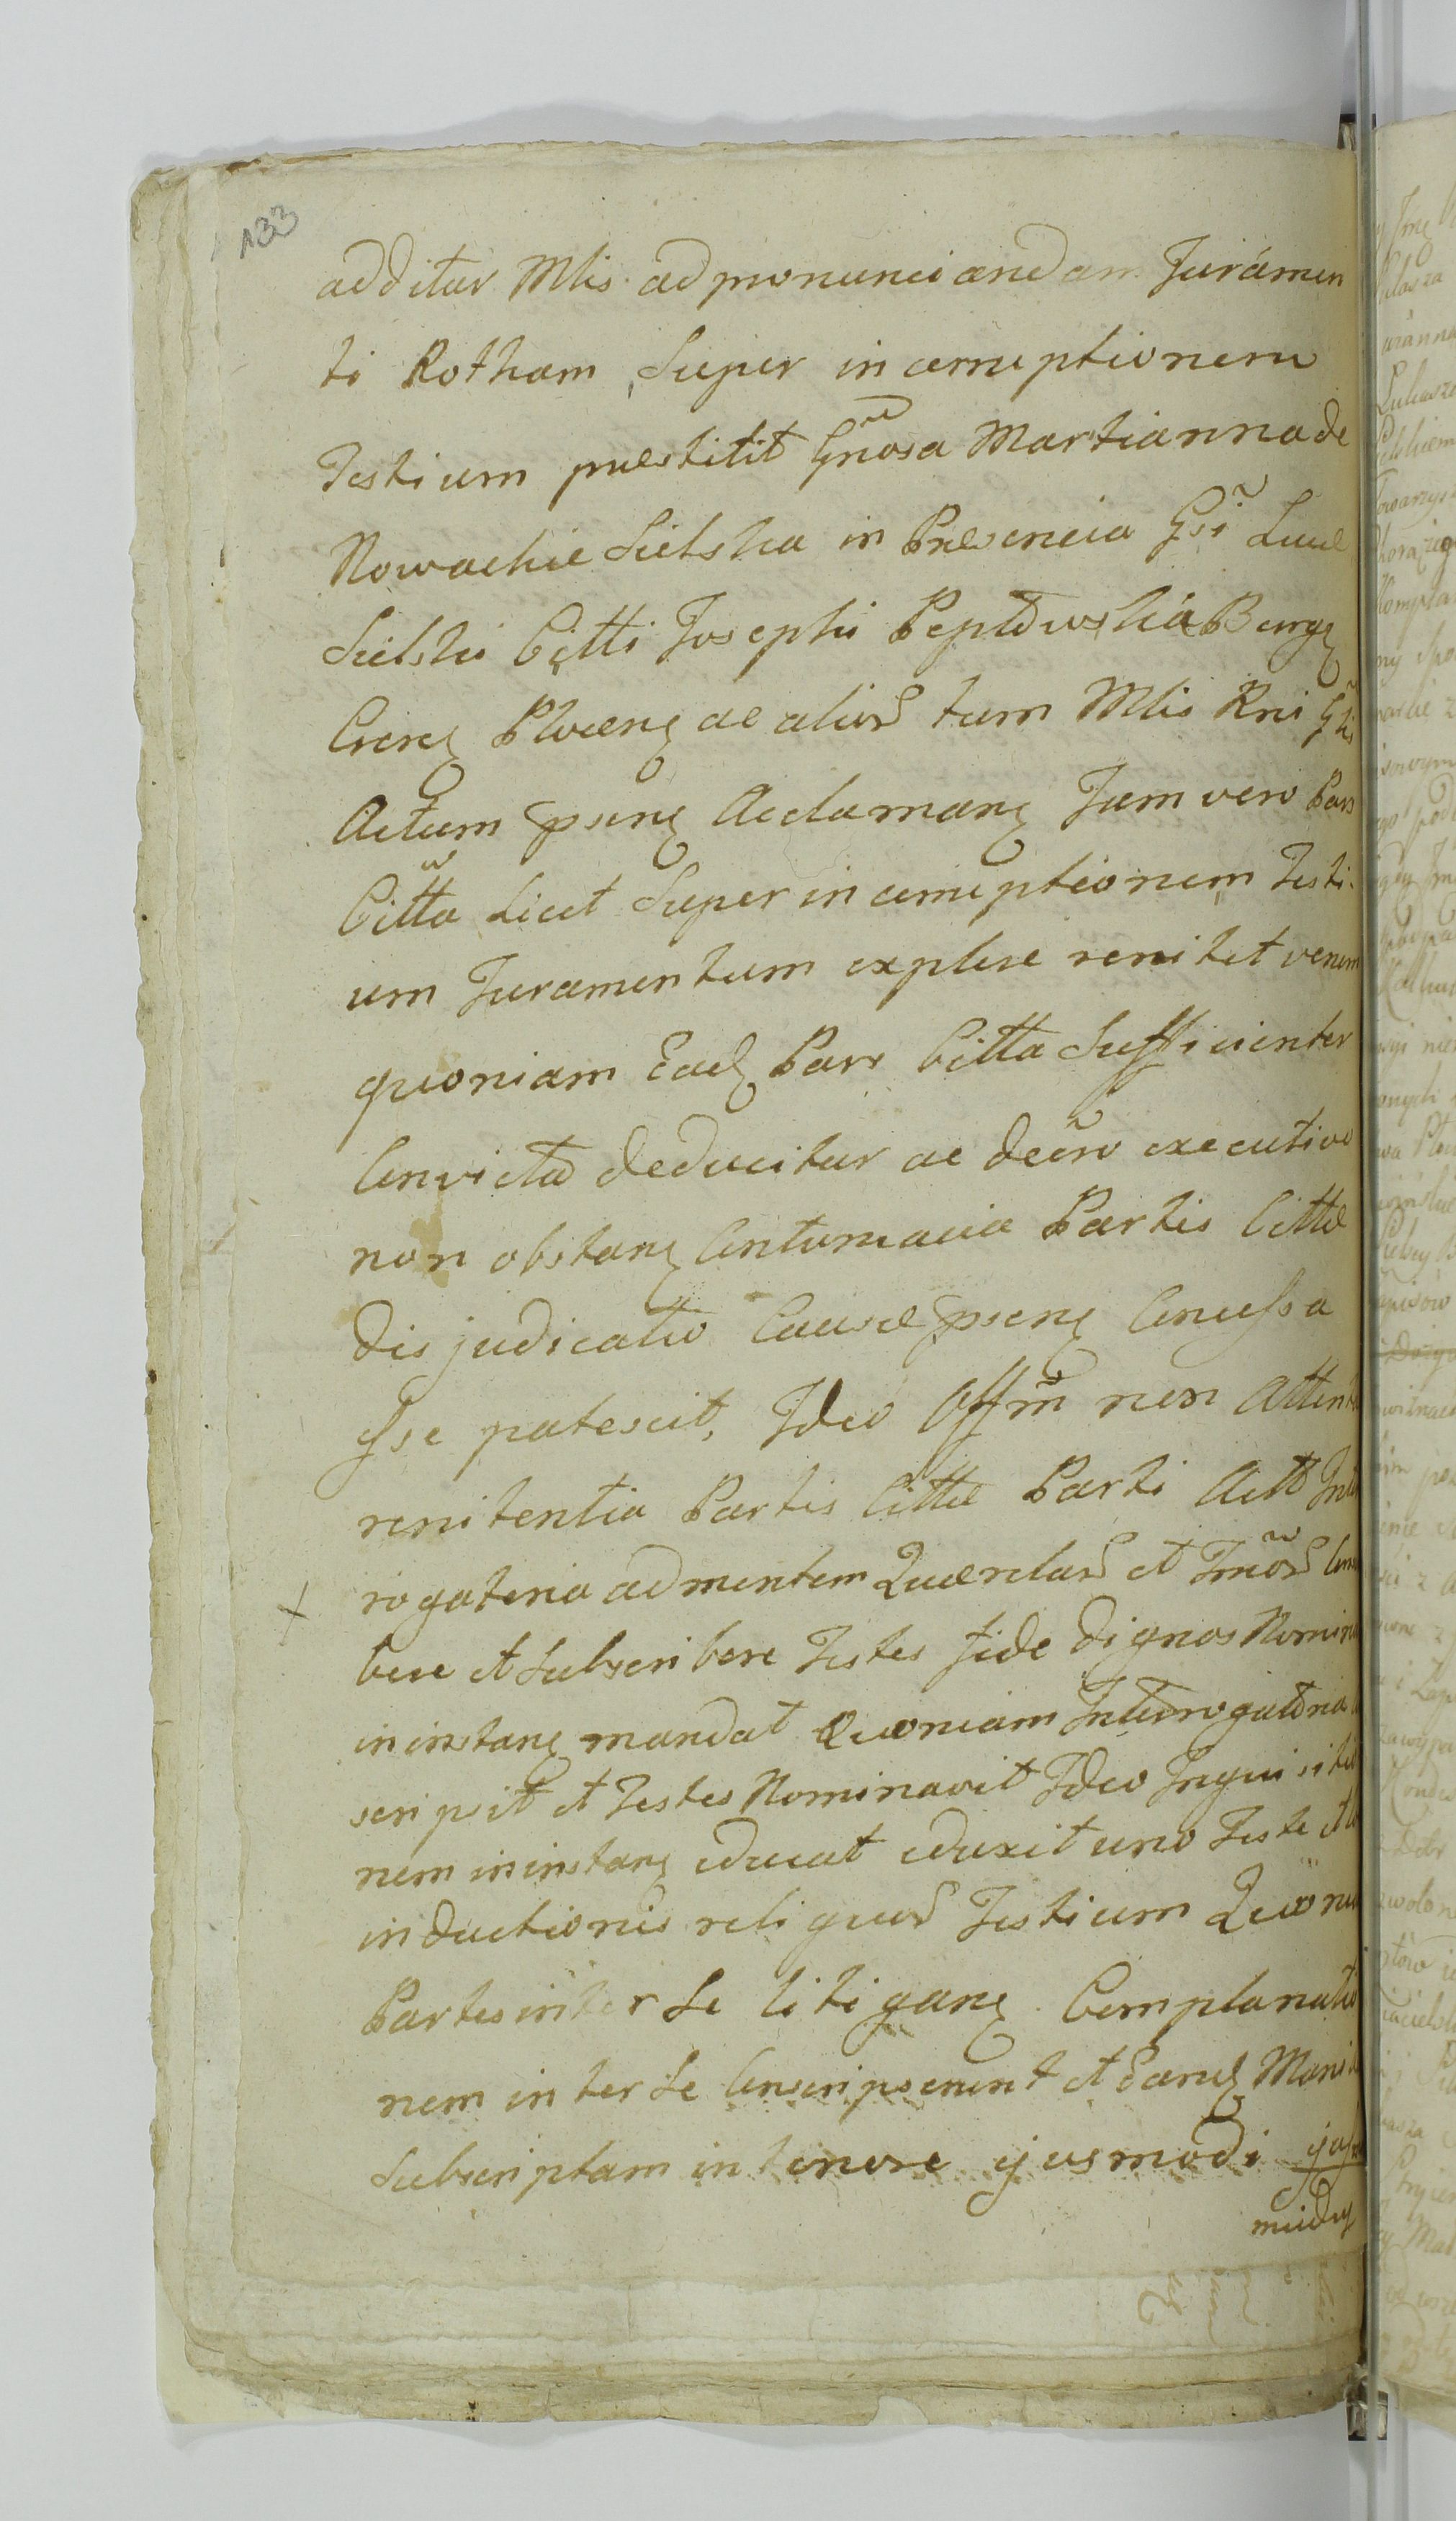 133
additur Mlis ad pronunciandam Juramen
ti Rotham Super incorruptionem
Testium præstitit Gñosa Martianna de
Nowackie Sielska in Præsencia Gsĩ Lucæ
Sielski Citti Josephi Peptowski a Burg
Actum pseng Acclamang Jam vero Pars
Citta Licet Super incorruptionem Testi
um Juramentum explere renitet verum
quoniam Ead Pars Citta Sufficienter
Convicta deducitur ac decro executivo
non obstang Contumacia Partis Cittæ
disjudicatio Causæ pseng Concussa
Esse patescit, Ideo Offm non Attenta
renitentia Partis Cittæ Parti Act Inter
rogatoria ad mentem Quærelar et Tmor Con
bere et Subscribere Testes fide dignos Nomina
in instang mandat Quoniam Interrogatoria
scripsit et Testes Nominavit Ideo Inquisitio
nem in instang educat eduxit uno Teste et
inductionis reliquor Testium Quoniam
Partes inter Se litigang Complanatio
nem inter Se Conscripserunt et Eand Mani
Subscriptam in tenore ejusmodi